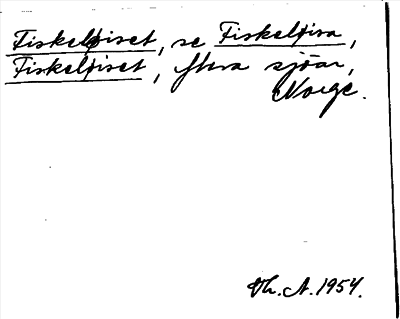 Fiskeløiset, se Fiskeløisa,
Fiskeløiset, flera sjöar,
Norge.
Vh. A. 1954.